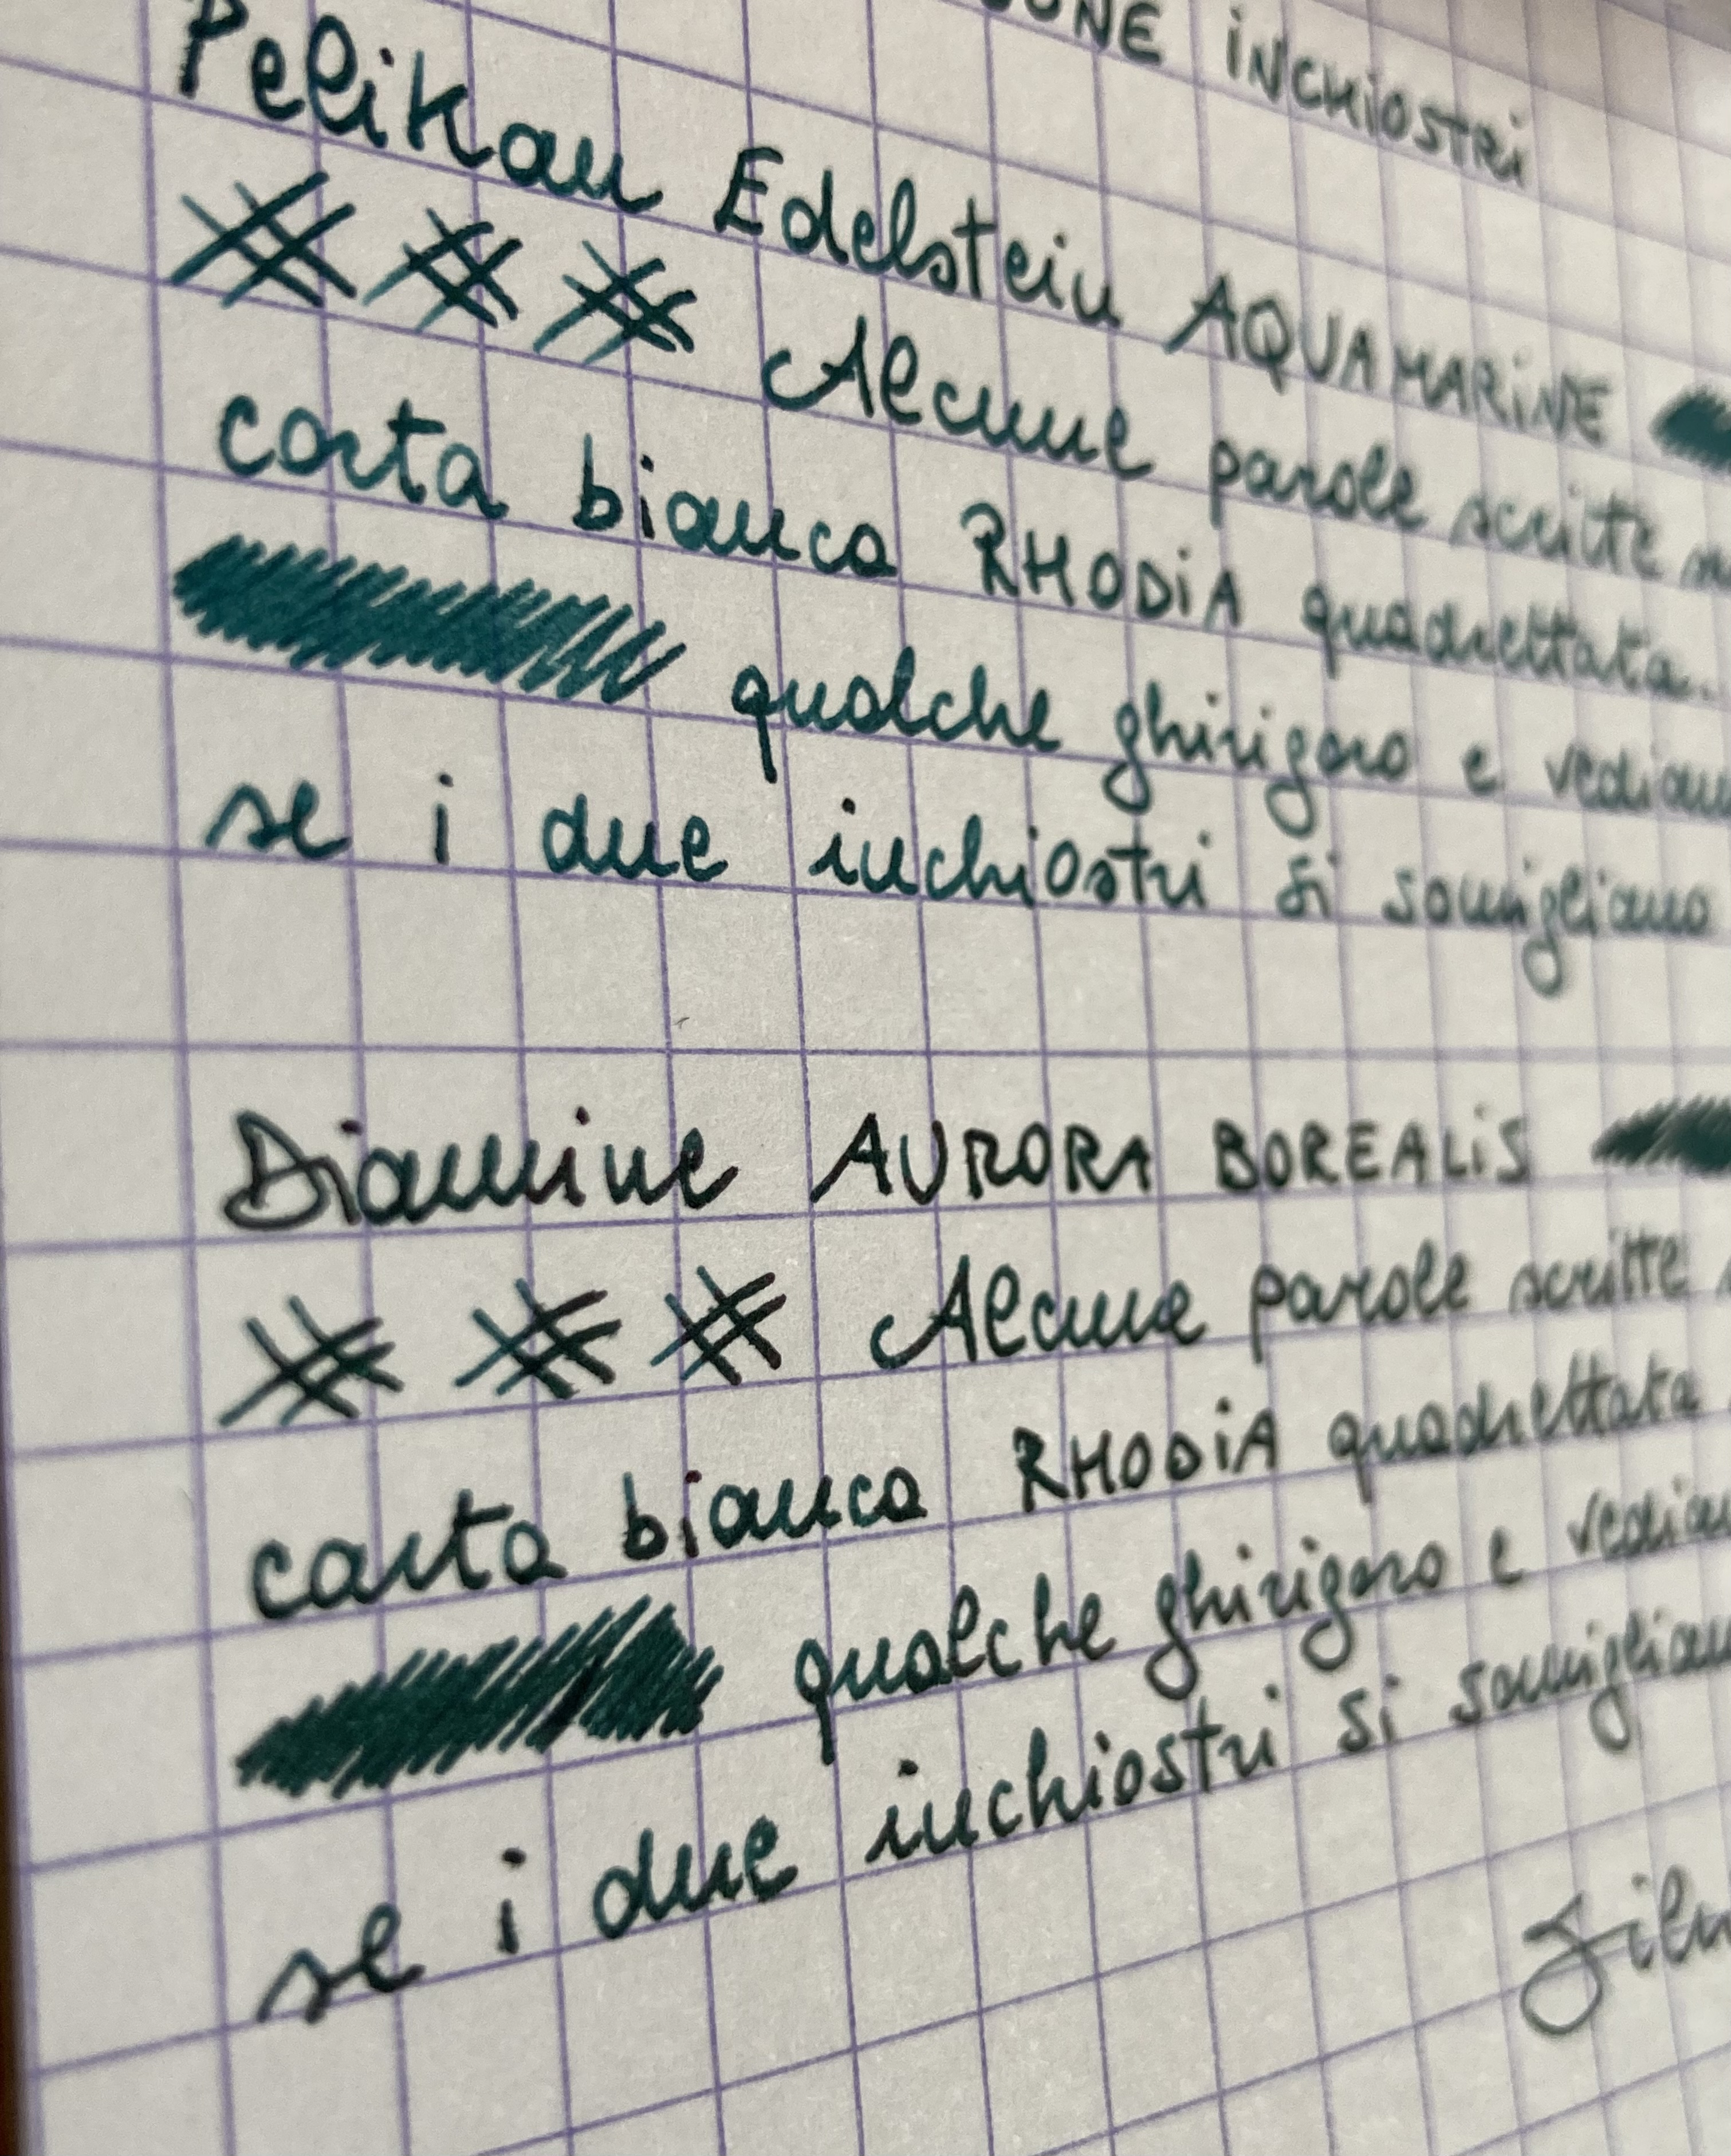 INCHIOSTRI
Pelikan Edelstein AQUAMARINE
Alcune parole scritte
carta bianca RHODIA quadrettata.
qualche ghirigoro e
se i due inchiostri si somigliano
Diamine AURORA BOREALIS
Alcune parole scritte
carta bianca RHODIA quadrettata
qualche ghirigoro e
se i due inchiostri si